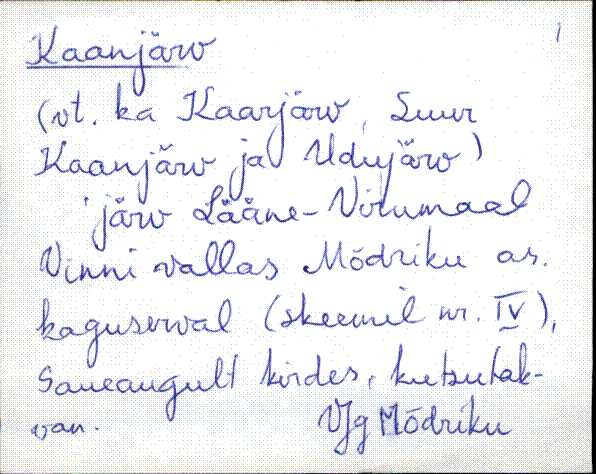 1
Kaanjärv
(vt. ka Kaarjärv, Suur
Kaanjärv ja Udujärv)
'järv Lääne-Virumaal
Vinni vallas Mõdriku as.
kaguserval (skeemil nr. IV),
Saueaugult kirdes, kutsutak-
van. VJg Mõdriku